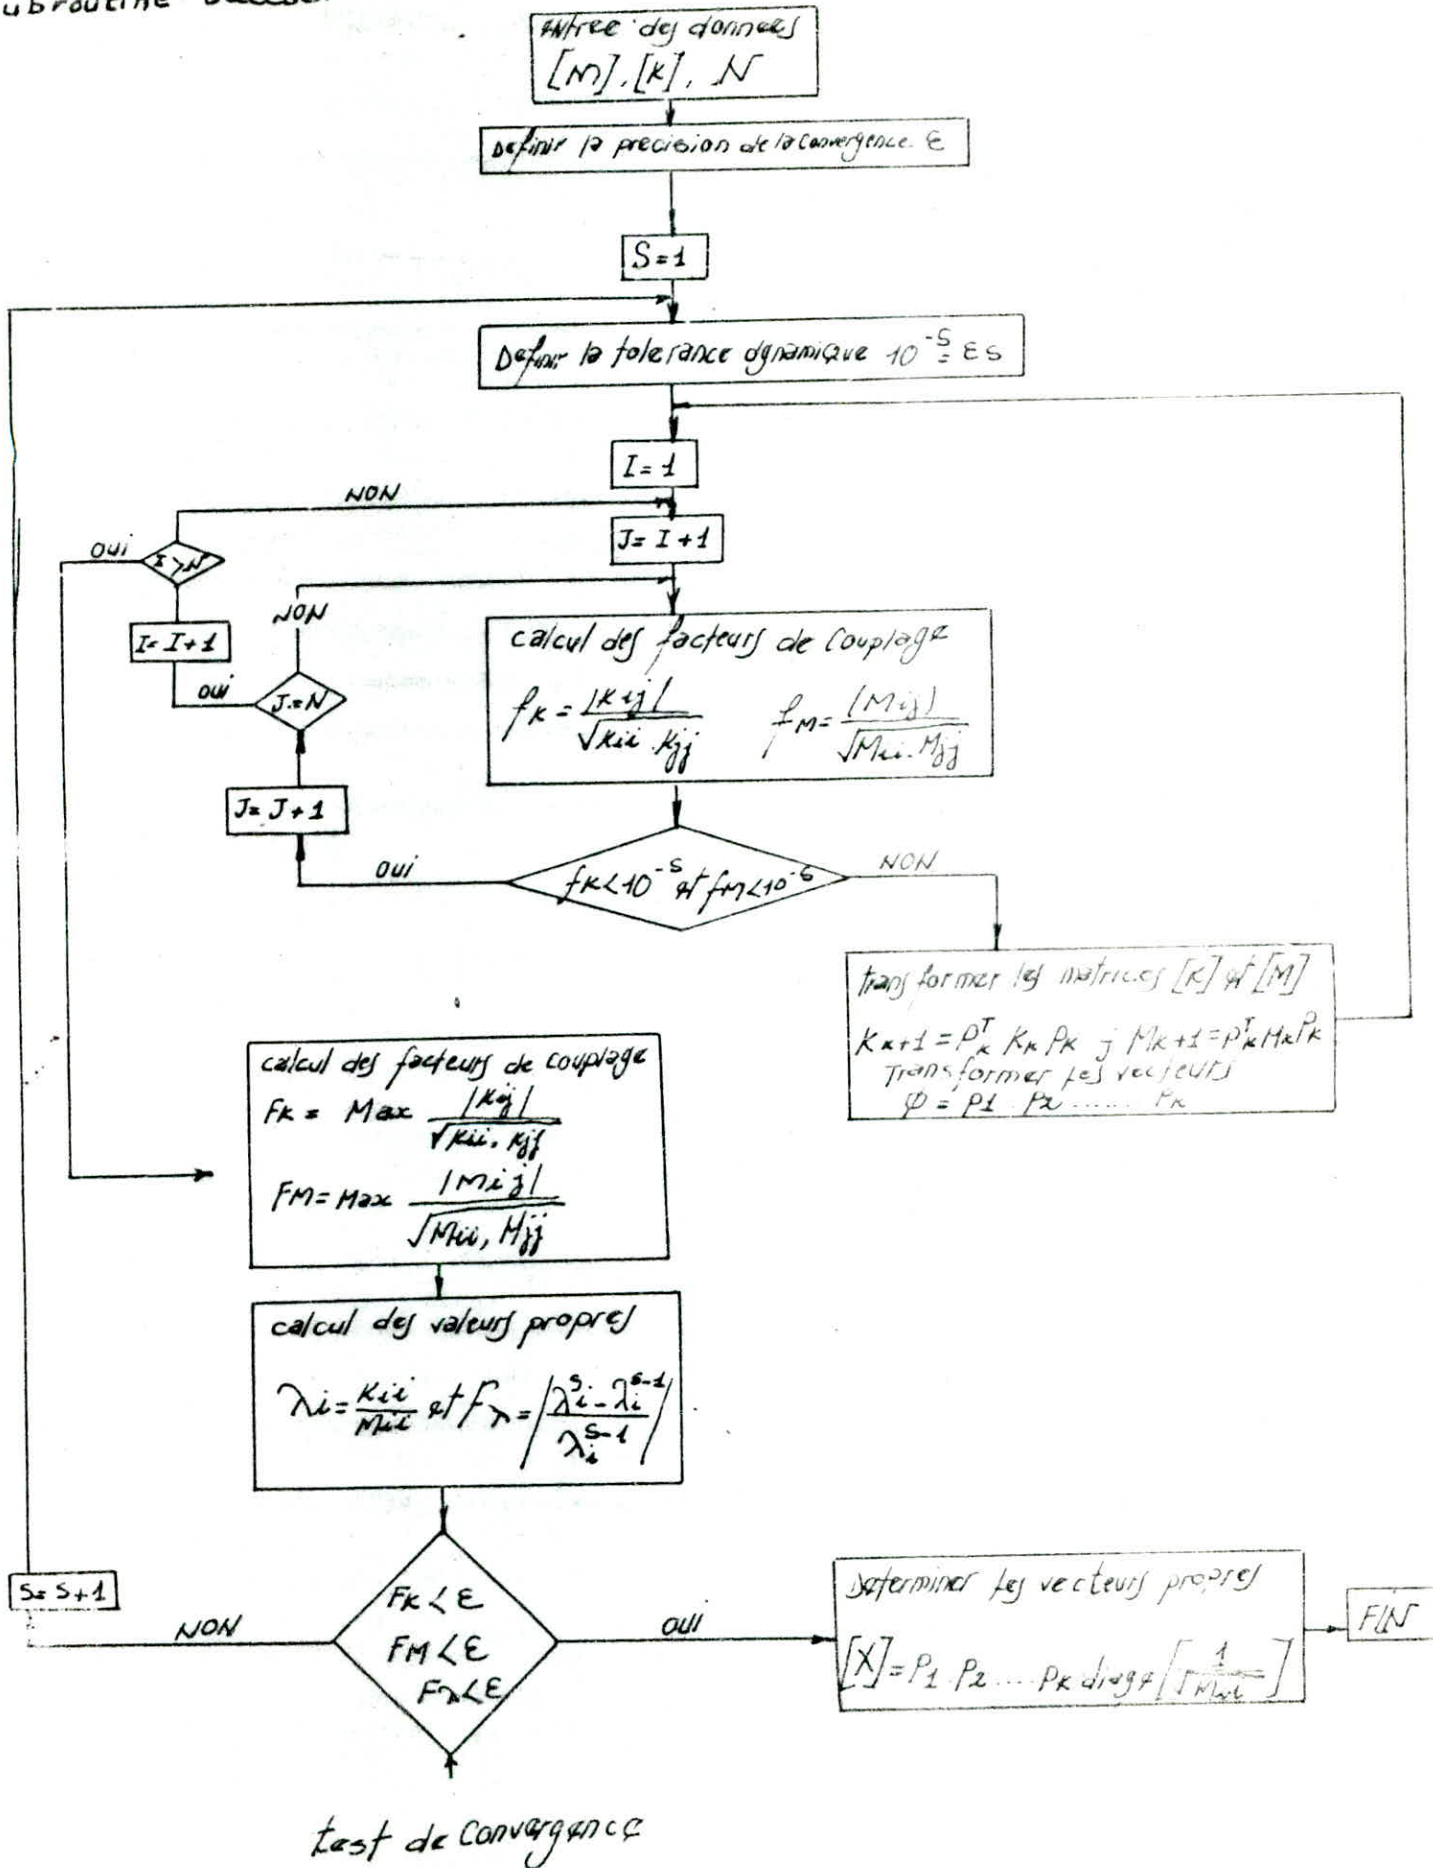 ubroutine
entree des données
[M], [K], N
Definir la precision de la convergence ε
S=1
Definir la tolerance dynamique 10^-S = ES
I=1
NON
OUI
I>N
J=I+1
NON
I=I+1
OUI
J=N
calcul des facteurs de couplage
fK = |Kij| / √Kii.Kjj   fM = |Mij| / √Mii.Mjj
J=J+1
OUI
fK<10^-S et fM<10^-S
NON
transformer les matrices [K] et [M]
Kk+1 = Pk^T Kk Pk ; Mk+1 = Pk^T Mk Pk
Transformer les vecteurs
φ = P1 . P2 ...... Pk
calcul des facteurs de couplage
FK = Max |Kij| / √Kii, Kjj
FM = Max |Mij| / √Mii, Mjj
calcul des valeurs propres
λi = Kii / Mii et Fλ = |λi^S - λi^S-1 / λi^S-1|
S=S+1
NON
FK<ε
FM<ε
Fλ<ε
OUI
Determiner les vecteurs propres
[X] = P1 . P2 .... Pk diag [1 / √Mii]
FIN
test de convergence